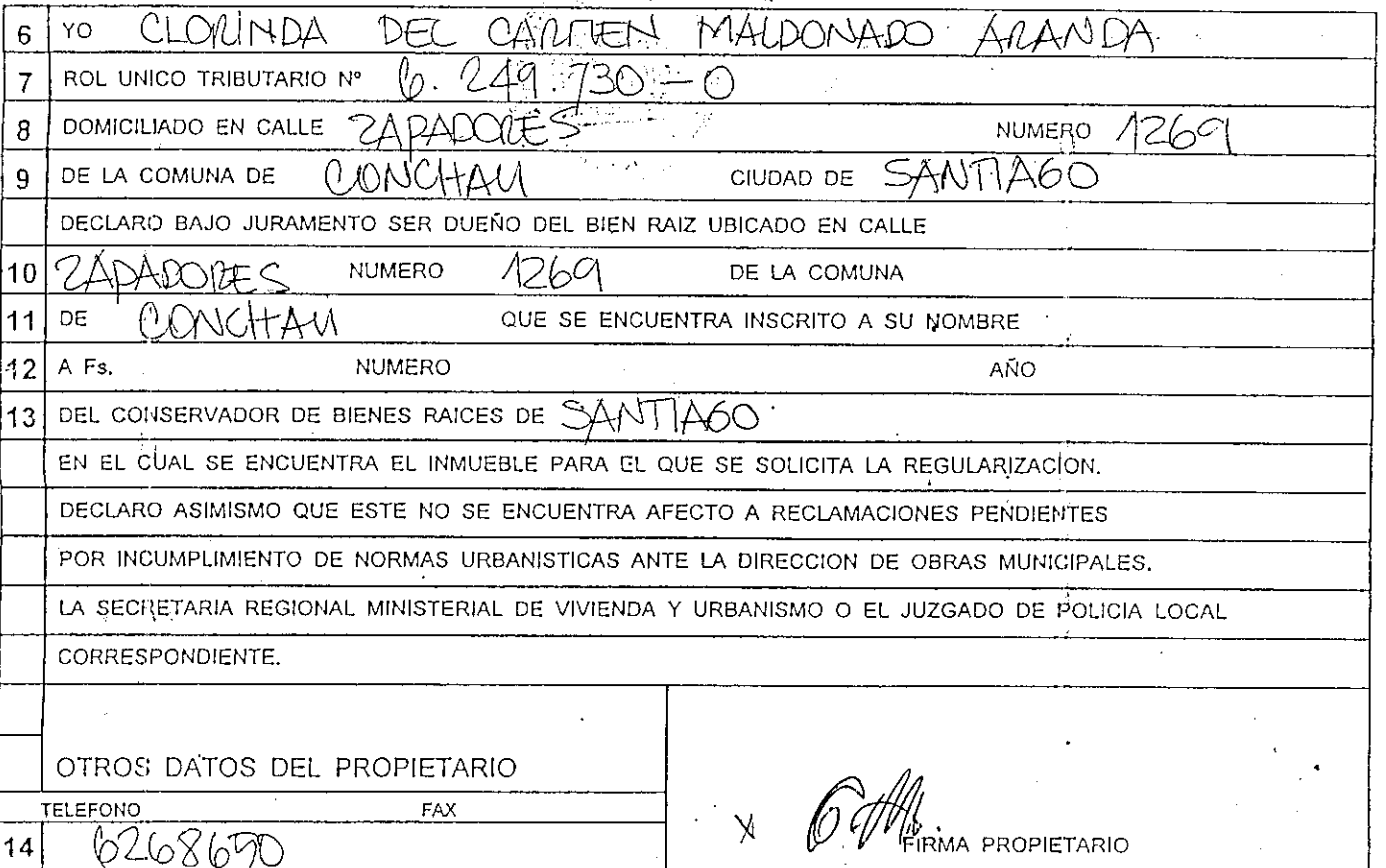 6 YO CLORINDA DEL CARMEN MALDONADO ARANDA
7 ROL UNICO TRIBUTARIO Nº 6.249.730-0
8 DOMICILIADO EN CALLE ZAPADORES NUMERO 1269
9 DE LA COMUNA DE CONCHALI CIUDAD DE SANTIAGO
DECLARO BAJO JURAMENTO SER DUEÑO DEL BIEN RAIZ UBICADO EN CALLE
10 ZAPADORES NUMERO 1269 DE LA COMUNA
11 DE CONCHALI QUE SE ENCUENTRA INSCRITO A SU NOMBRE
12 A Fs. NUMERO AÑO
13 DEL CONSERVADOR DE BIENES RAICES DE SANTIAGO
EN EL CUAL SE ENCUENTRA EL INMUEBLE PARA EL QUE SE SOLICITA LA REGULARIZACION.
DECLARO ASIMISMO QUE ESTE NO SE ENCUENTRA AFECTO A RECLAMACIONES PENDIENTES
POR INCUMPLIMIENTO DE NORMAS URBANISTICAS ANTE LA DIRECCION DE OBRAS MUNICIPALES.
LA SECRETARIA REGIONAL MINISTERIAL DE VIVIENDA Y URBANISMO O EL JUZGADO DE POLICIA LOCAL
CORRESPONDIENTE.
OTROS DATOS DEL PROPIETARIO
TELEFONO FAX
14 6268690
X FIRMA PROPIETARIO